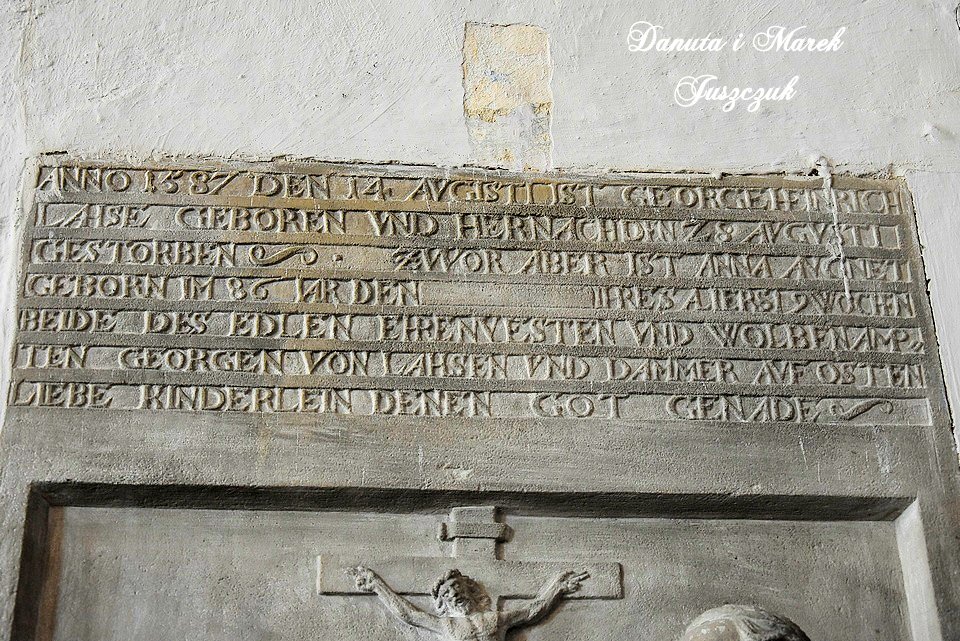 Danuta i Marek
Juszczuk
ANNO 1587 DEN 14 AVGISTI IST GEORGE HEINRICH
LAHSE GEBOREN VND HERNACH DEN 28 AVGVSTI
GESTORBEN ZVVOR ABER IST ANNA AVGNETI
GEBORN IM 86 IAR DEN IHRES ALERS 19 WOCHEN
BEIDE DES EDLEN EHRENVESTEN VND WOLBENAMP
TEN GEORGEN VON LAHSEN VND DAMMER AVF OSTEN
LIEBE KINDERLEIN DENEN GOT GENADE